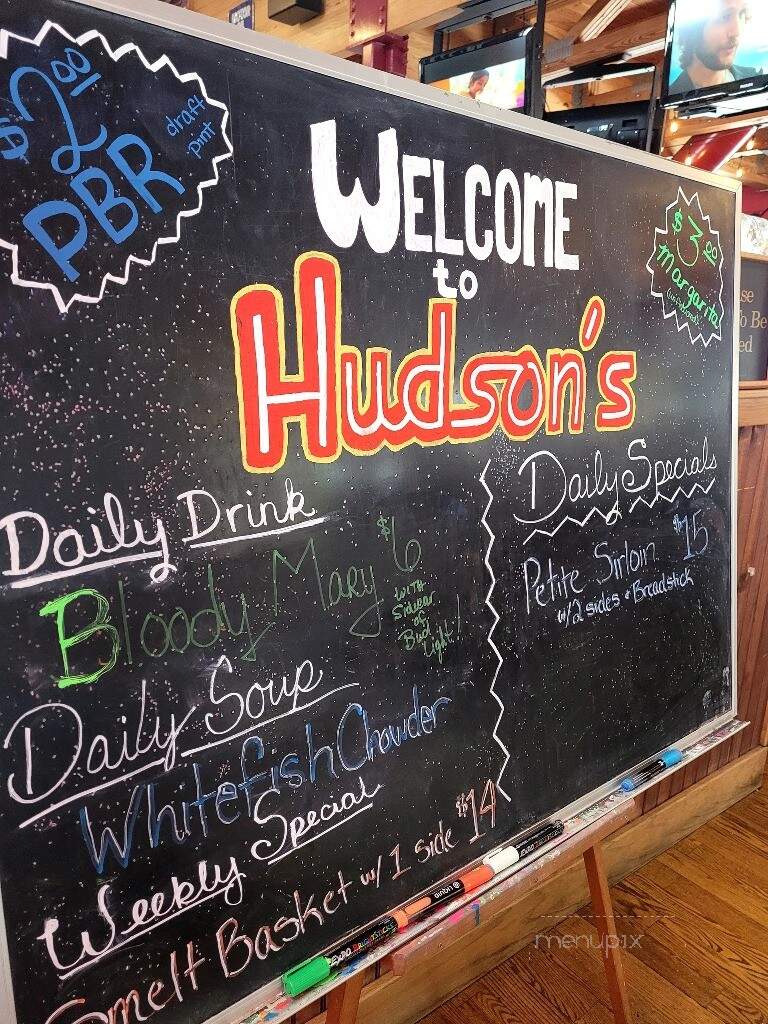 $2.00
PBR
draft
pint
WELCOME
to
Hudson's
$3.00
margarita
Daily Drink
Bloody Mary $6
WITH
Sidecar
of
Bud
Light!
Daily Soup
Whitefish Chowder
Weekly Special
Smelt Basket w/ 1 side $14
Daily Specials
Petite Sirloin $15
w/2 sides + Breadstick
se
To Be
ed
EXPO
menupix